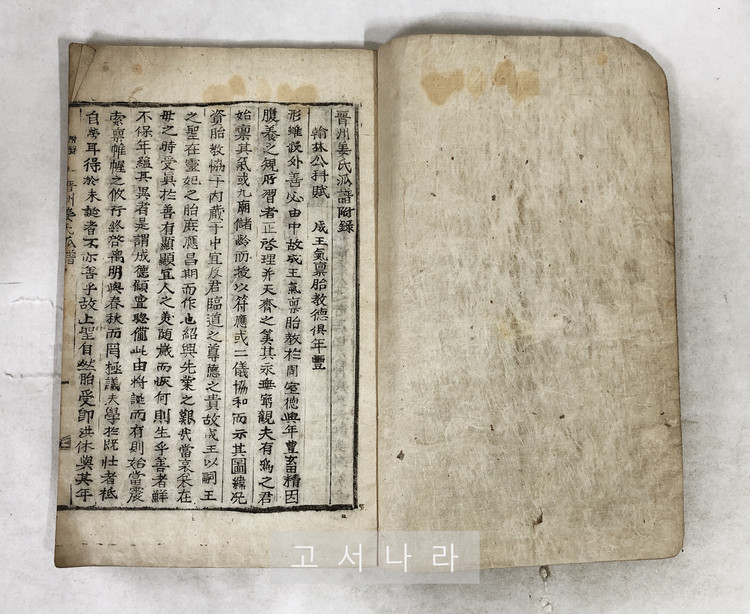 晋州姜氏派譜附錄
翰林公科賦 成王氣禀胎教德俱年豐
形維逃外善必由中故成王氣禀胎教於周室德與年豊玄酉精因
腹養之規所習者正啓理并天齊之美其永無窮觀夫有爲之君
始禀其氣或九廟儲齡而授以符應或二儀協和而示其圖纁况
資胎教協于内藏于中宜反君臨道之尊德之貴故成王以嗣王
之聖在靈妃之胎庶應昌期而作也紹興先業之艱我當哀采在
母之時受眞於善有顯顯宜人之美随歲而恢何則生乎善者鮮
不保年蘊其異者是謂成德顧豊聰儱此由將誕而有則始當震
索禀帷幄之攸行終啓离明與春秋而罔極議夫學於既壯者祇
自勞耳得於未誕者不亦善乎故上聖自然胎受即洪休與其年
晋州姜氏派譜
고서나라